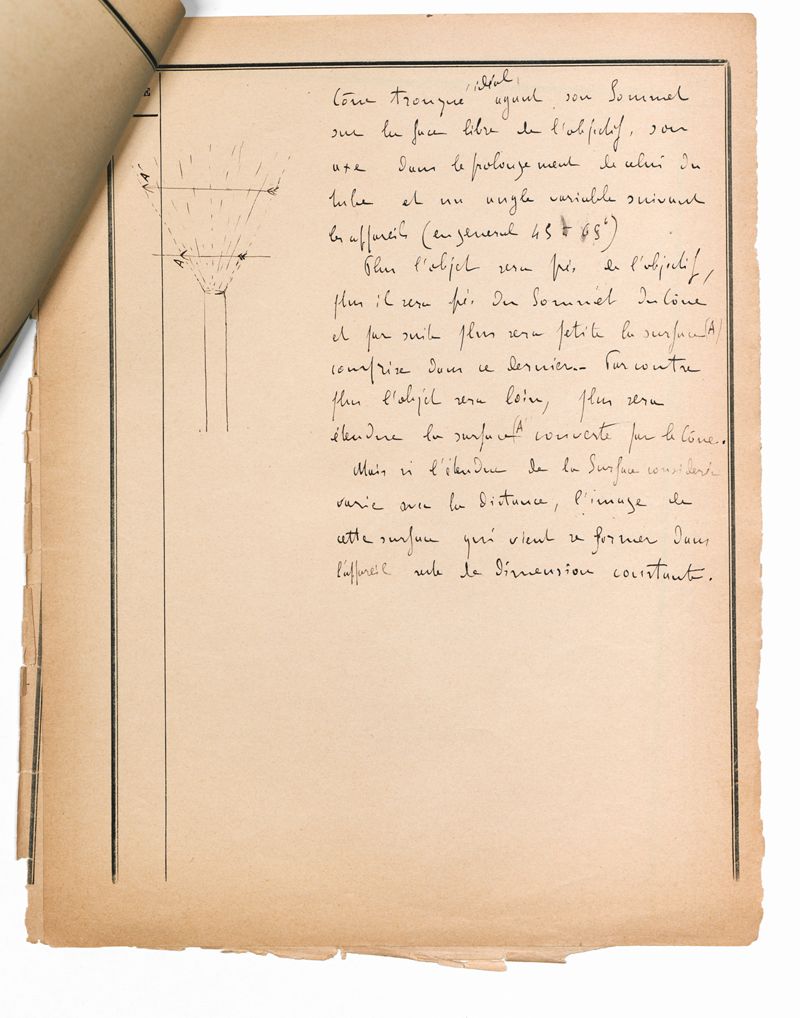 E
idéal,
Cône tronqué ayant son Sommet
sur la face libre de l'objectif, son
axe dans le prolongement de celui du
tube et un angle variable suivant
les appareils (en general 45 65°)
Plus l'objet sera près de l'objectif,
plus il sera près du Sommet du Cône
et par suite plus sera petite la surface (A)
comprise dans ce dernier. Par contre
plus l'objet sera loin, plus sera
étendue la surface (A' couverte par le Cône.
Mais si l'étendue de la Surface considerée
varie avec la distance, l'image de
cette surface qui vient se former dans
l'appareil reste de dimension constante.
A'
A